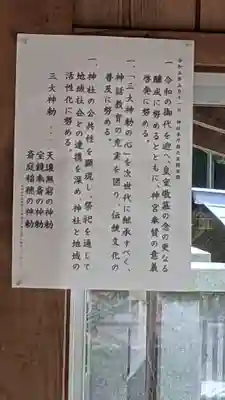 一 令和の御代を迎へ、皇室敬慕の念の更なる
醸成に努めるとともに、神宮奉賛の意義
啓発に努める。
一、「三大神勅の心」を次世代に継承すべく、
神話教育の充実を図り、伝統文化の
普及に努める。
一、神社の公共性を顕現し、祭祀を通じて
地域社会との連携を深め、神社と地域の
活性化に努める。
三大神勅…
天壌無窮の神勅
宝鏡奉斎の神勅
斎庭稲穂の神勅